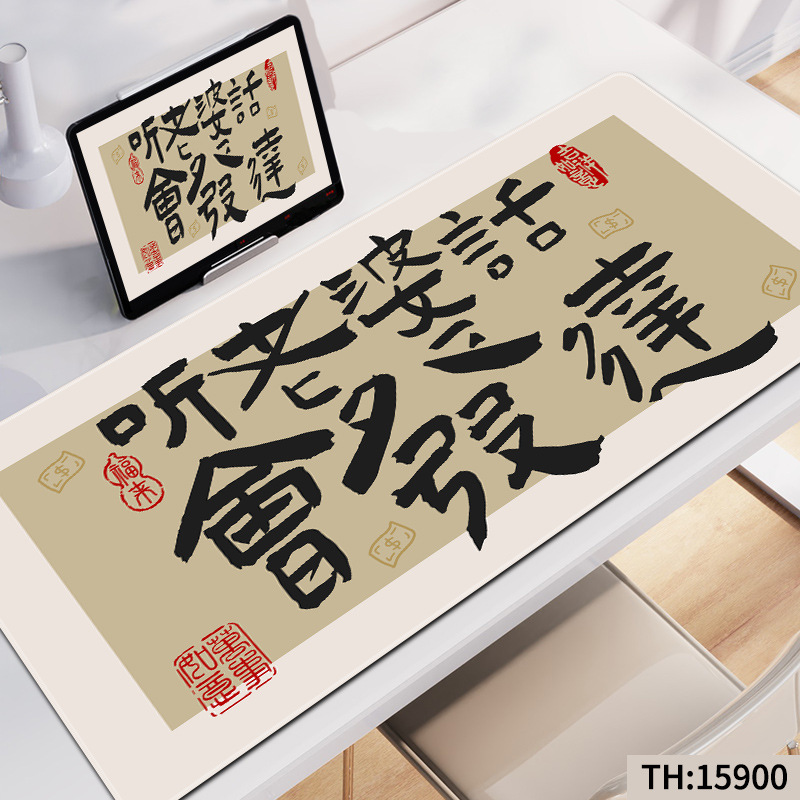 听老婆話
會發達
福来
萬事如意
听老婆話
會發達
TH:15900